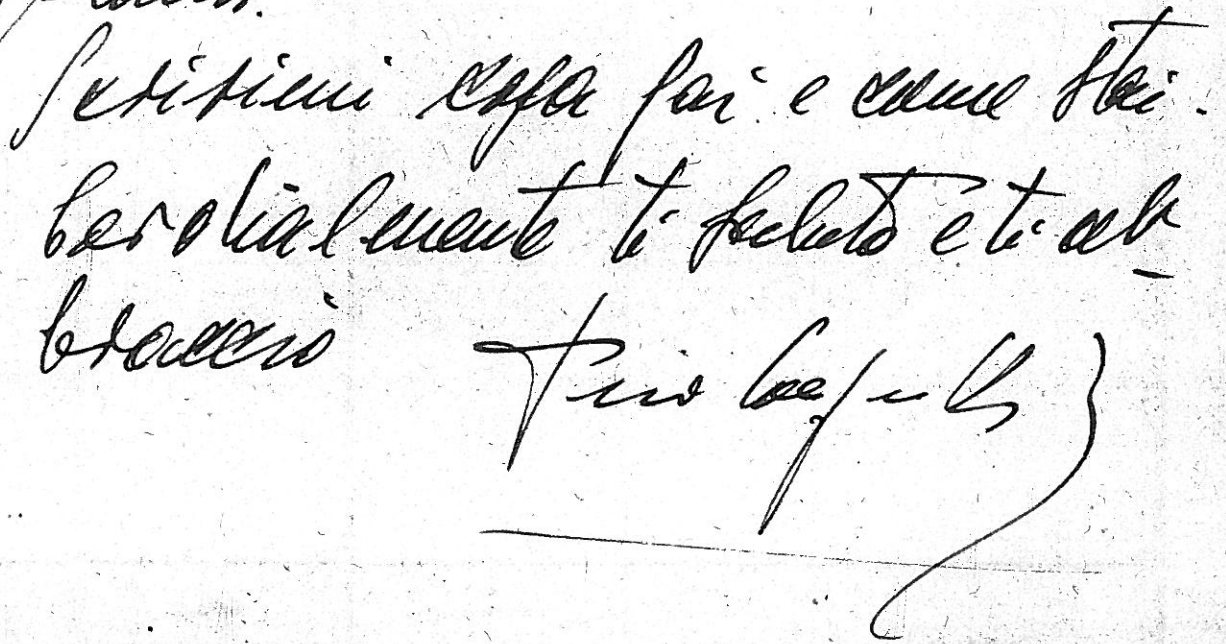 Scrivimi cosa fai e come stai.
Cordialmente ti saluto e ti ab-
braccio Tino